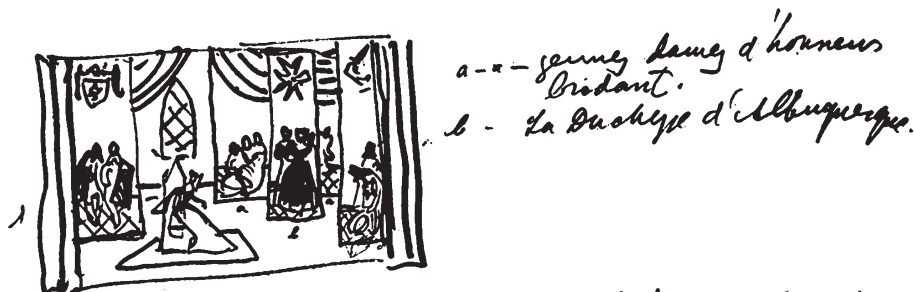 a - a - jeunes Dames d'honneur
brodant.
b - La Duchesse d'Albuquerque.
1
a
b
a